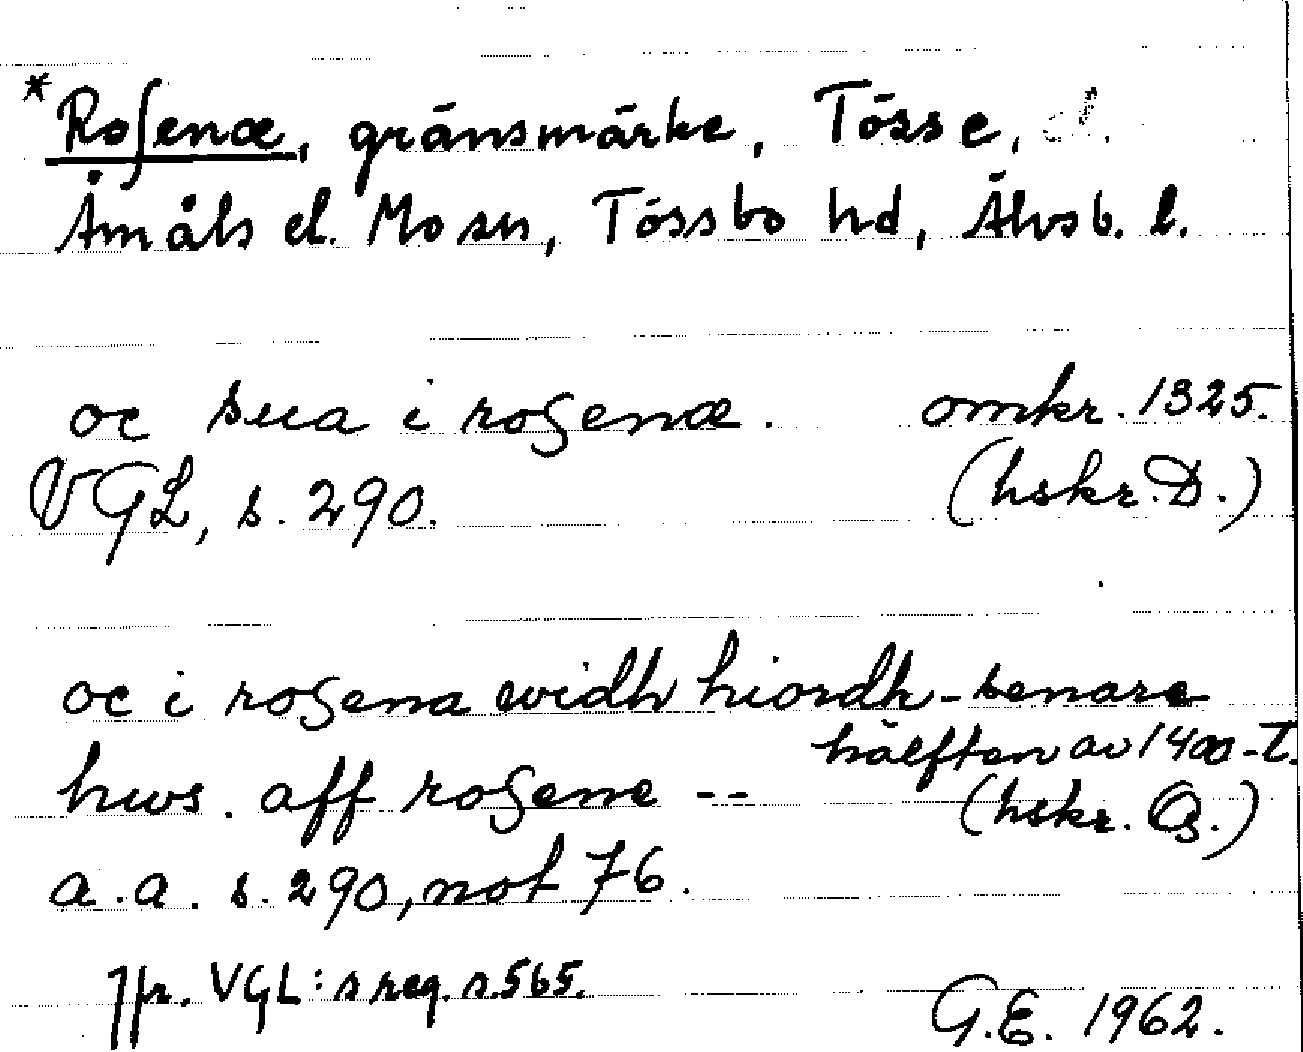 *Roſenæ, gränsmärke, Tösse, el.
Åmåls el. Mo sn, Tössbo hd, Älvsb. l.
oc sua i rosenæ. omkr. 1325.
VGL, s. 290. (hskr. D.)
oc i rosena widh hiordh- senare
hws. aff rosene -- hälften av 1400-t.
(hskr. O.)
a.a. s. 290, not 76.
Jfr. VGL:s reg. s. 565.
G.E. 1962.